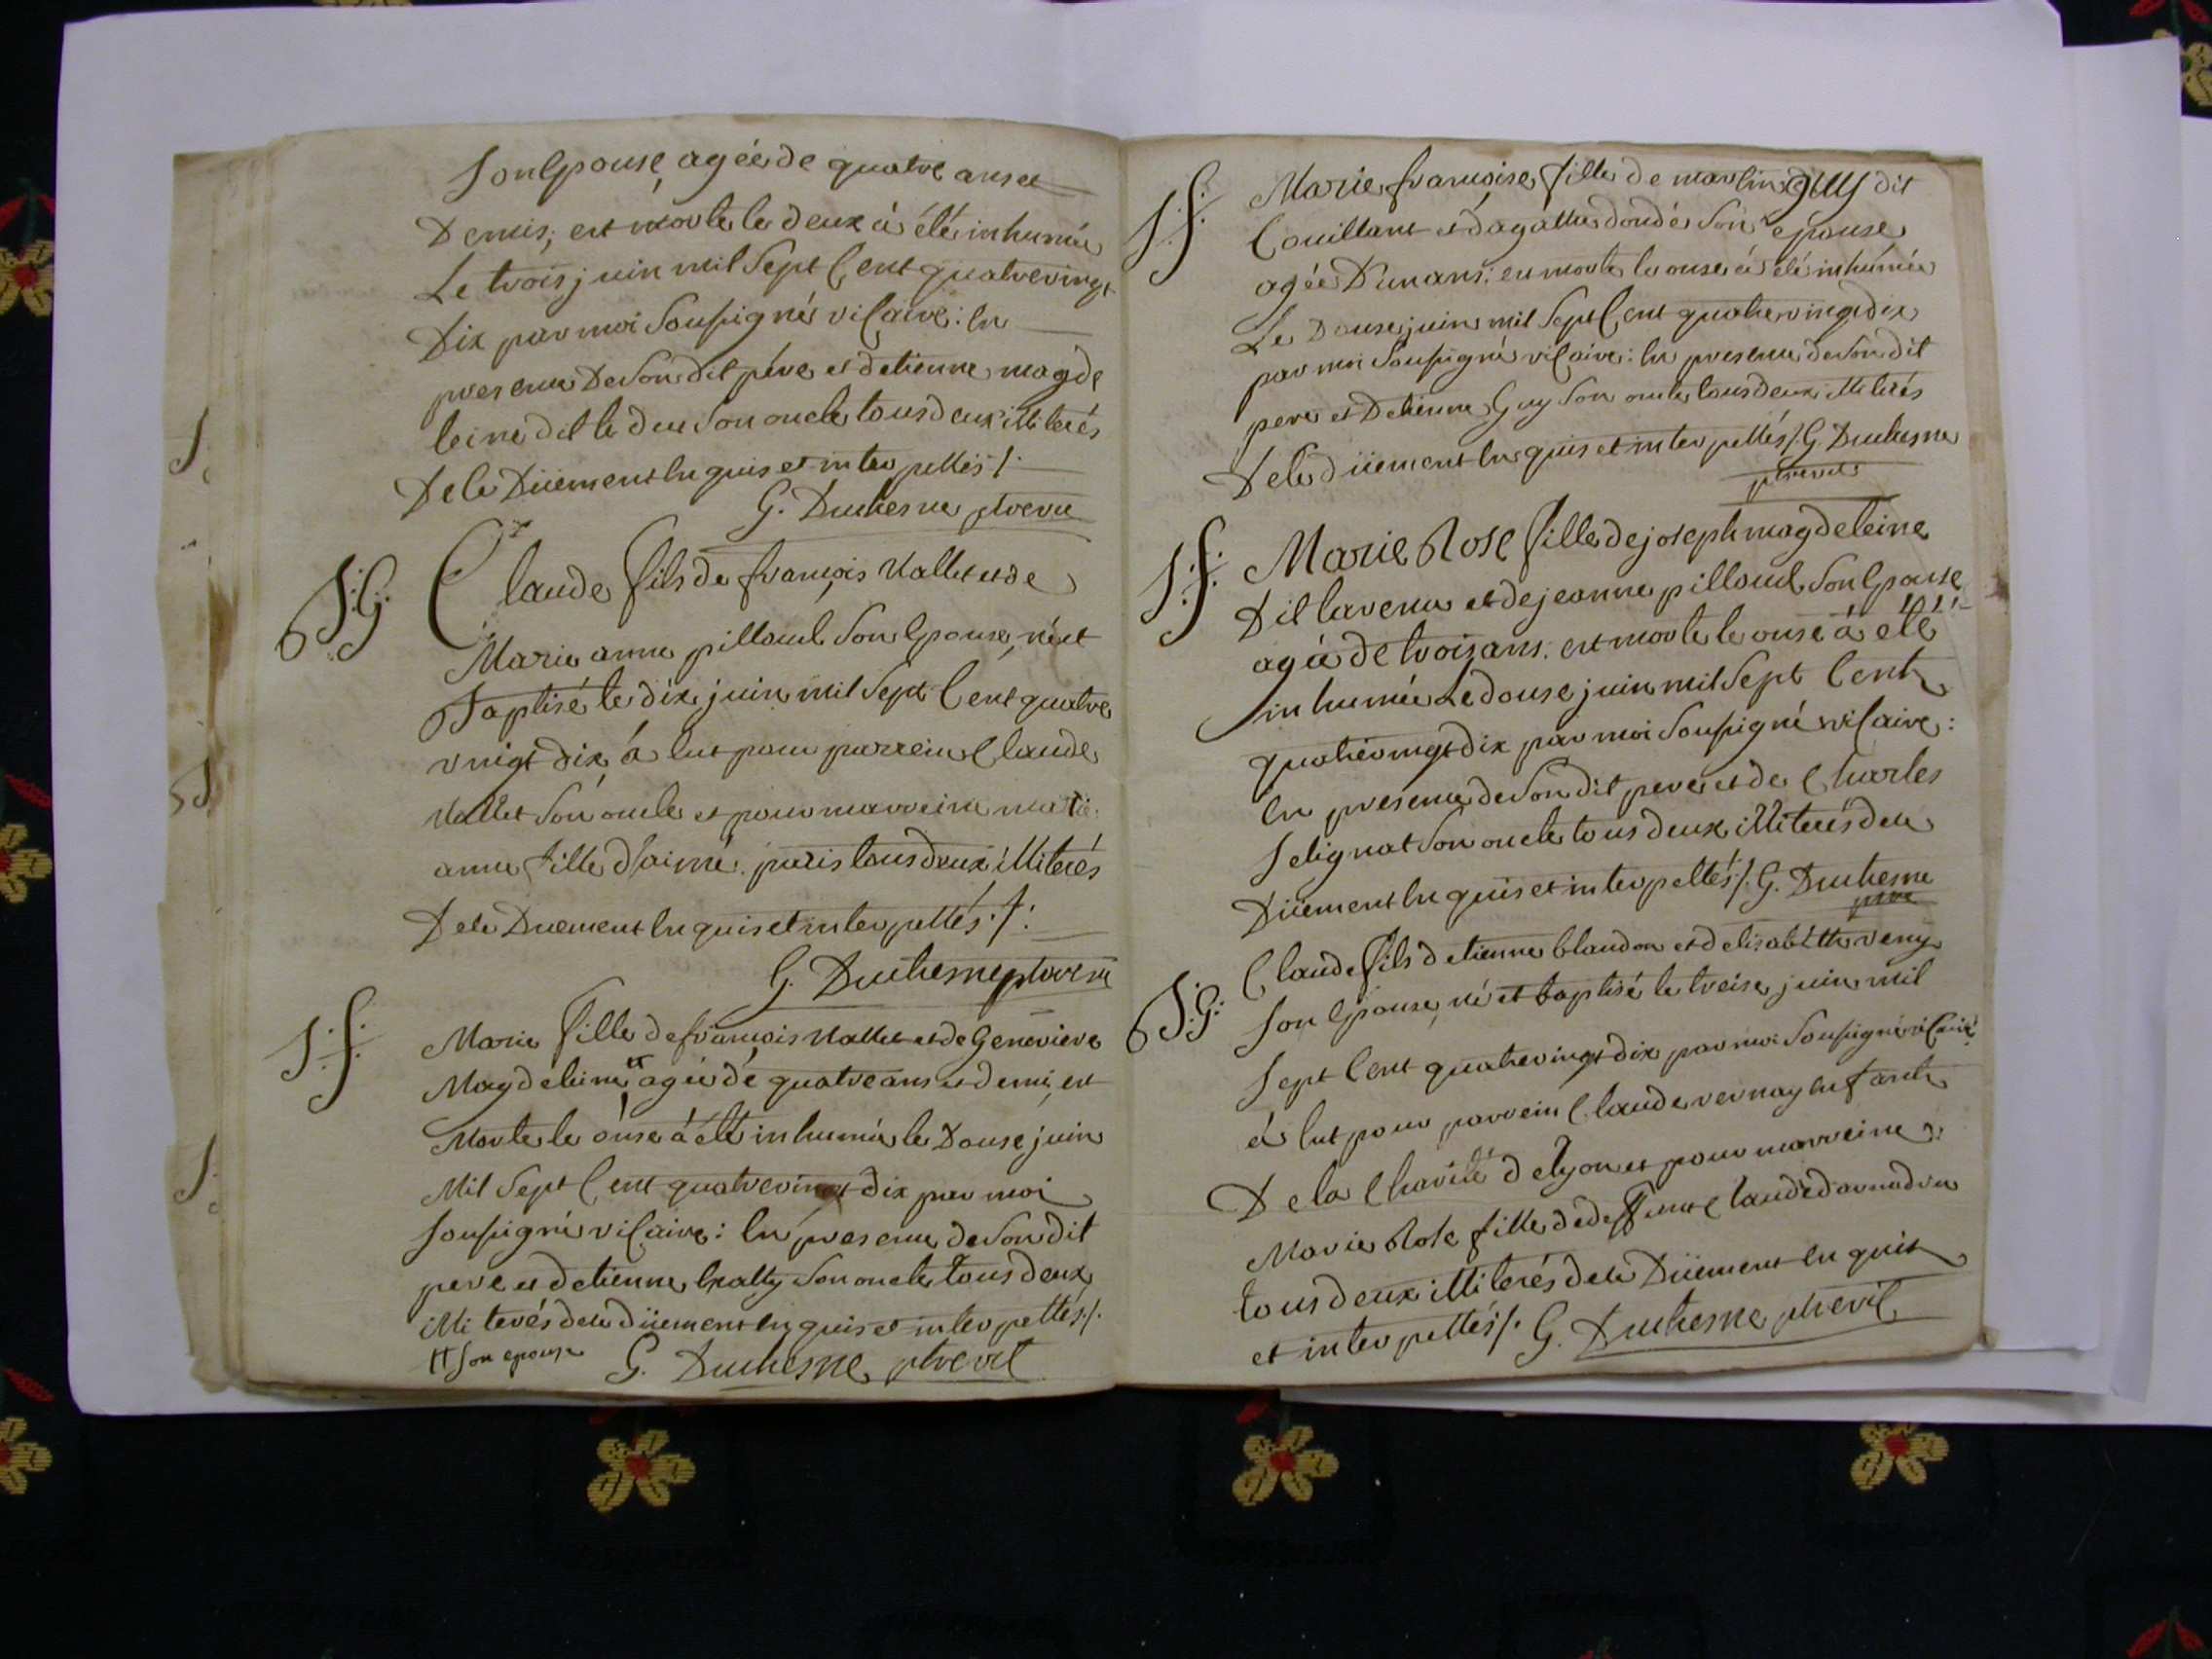 Son Epouse, agée de quatre ans et
Demis; est morte le deux à été inhumée
Le trois juin mil Sept Cent quatrevingt
Dix par moi Soussigné viCaire: En
presence De Son dit pére et d'etienne magde
leine dit le duc Son oncle tous deux illiterés
De Ce Düement Enquis et interpellés /.
G. Duchesne ptre vic
B: S: G:
Claude fils de françois Vallet et de
Marie anne pilloud Son Epouse, né et
Baptisé le dix juin mil Sept Cent quatre
vingt dix à Eut pour parrein Claude
Vallet Son oncle et pour marreine marie
anne fille d'aimé paris tous deux illiterés
De Ce Duement Enquis et interpellés ./:
G. Duchesne ptre vic
S: f:
Marie fille de françois Vallet et de Genevieve
Magdeleine # agée de quatre ans et demi, est
Morte le onse à été inhumée le Douse juin
Mil Sept Cent quatrevingt dix par moi
Soussigné viCaire: En presence de Son dit
pere et d'etienne Son oncle tous deux
illiterés de Ce düement Enquis et interpellés /.
# Son epouse G. Duchesne ptre vic
S: f:
Marie françoise fille de martin guy dit
Couillant et d'agathe Son epouse
agée D'un ans: est morte le onse à été inhumée
Le Douse juin mil Sept Cent quatrevingt dix
par moi Soussigné viCaire: En presence de Son dit
pere et D'etienne Guy Son oncle tous deux illiterés
De Ce düement Enquis et interpellés /. G. Duchesne
ptre vic
S: f:
Marie Rose fille de joseph magdeleine
Dit lavenu et de jeanne pilloud Son Epouse
agée de trois ans. est morte le onse à été
inhumée Le douse juin mil Sept Cent
quatrevingt dix par moi Soussigné viCaire:
En presence de Son dit pere et de Charles
Selignat Son oncle tous deux illiterés de Ce
Düement Enquis et interpellés /. G. Duchesne
ptre
B: S: G:
Claude fils d'etienne blandon et d'elisabeth veny
Son Epouse, né et baptisé le treise juin mil
Sept Cent quatrevingt dix par moi Soussigné viCaire:
à Eut pour parrein Claude vernay Enfant
De la Charité de lyon et pour marreine
Marie Rose fille de deffunt Claude
tous deux illiterés de Ce Düement Enquis
et interpellés /. G. Duchesne ptre vic